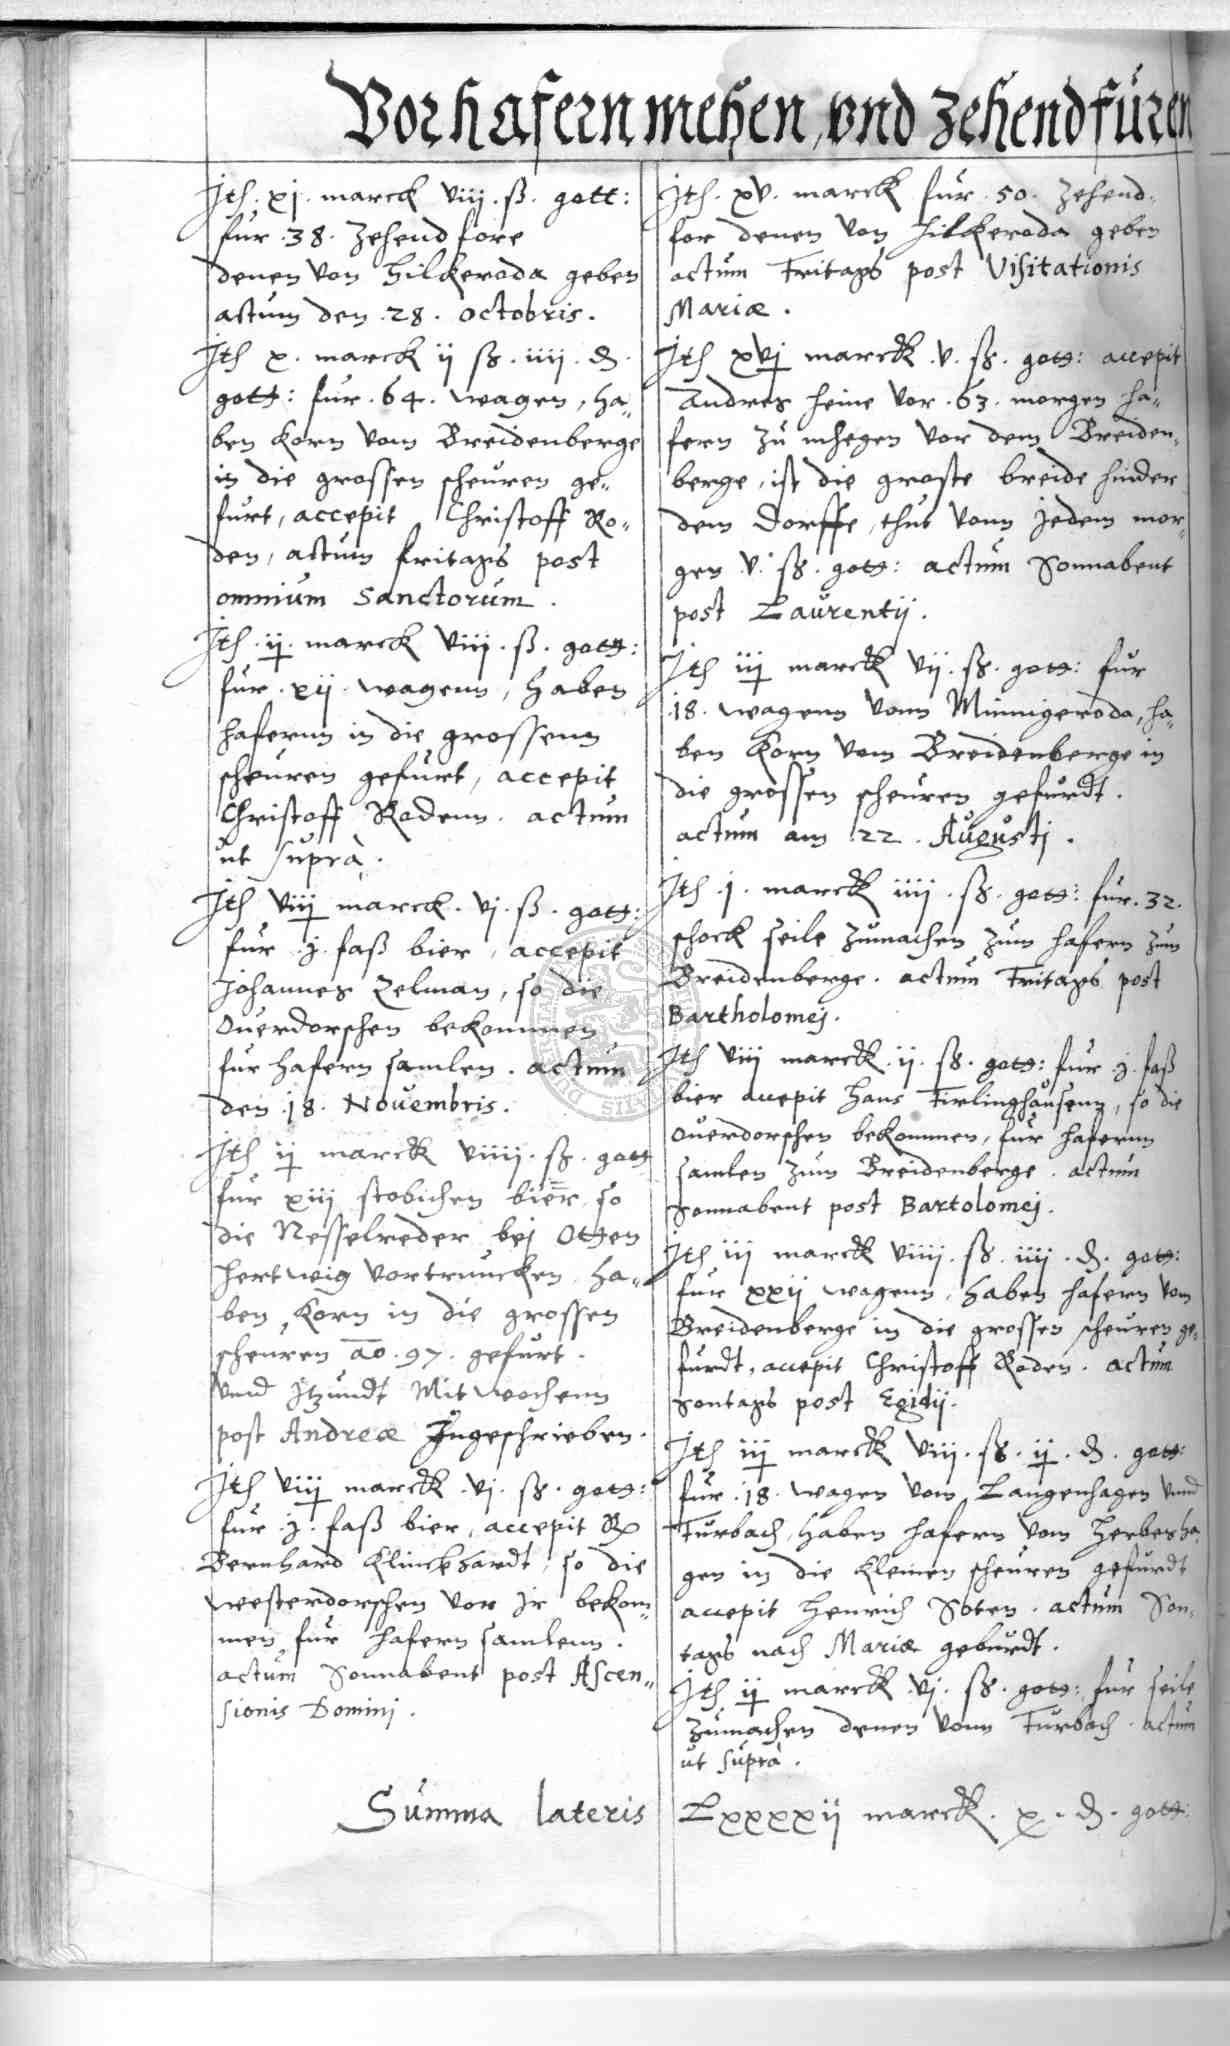 Vor hafern mehen, vnd zehendfüren
Ith. xj. marck viij. ß. gott:
fur .38. zehend fore
denen von Hilkeroda geben
actum den .28. Octobris.
Ith x. marck ij ß. iiij. d.
gott: fur .64. wagen, ha„
ben korn vom Breidenberge
in die grossen scheuren ge„
furt, accepit Christoff Ro„
den, actum fritags post
omnium Sanctorum.
Ith. ij. marck viij. ß. gott:
fur .xij. wagenn, haben
hafernn in die grossenn
scheuren gefurt, accepit
Christoff Rodenn. actum
ut suprà.
Ith viij marck. vj. ß. gott:
fur .j. faß bier, accepit
Johannes Zelman, so die
Ouerdorschen bekommen
fur hafern samlen. actum
den .18. Nouembris.
Ith ij marck viiij. ß. gott
fur xiij stobichen bier, so
die Nesselreder bej Otten
hertwig vortruncken, ha„
ben korn in die grossen
scheuren ao. 97. gefurt.
Vnd Itzundt Mitwochenn
post Andreæ Ingeschrieben.
Ith viij marck .vj. ß. gott:
fur .j. faß bier, accepit
Bernhard Klinckhardt, so die
westerdorschen vor Ir bekom„
men fur hafern samlenn.
actum Sonnabent post Ascen„
sionis Dominj.
Ith. xv. marck fur .50. zehend„
for denen von Hilkeroda geben
actum Fritags post Visitationis
Mariæ.
Ith xvj marck .v. ß. gott: accepit
Andres Heine vor .63. morgen ha„
fern zu mhegen vor dem Breiden„
berge, ist die groste breide hinder
dem Dorffe, thut vonn jedem mor„
gen v. ß. gott: actum Sonnabent
post Laurentij.
Ith iij marck vij. ß. gott: fur
.18. wagenn vonn Minnigeroda, ha„
ben korn vom Breidenberge in
die grossen scheuren gefurdt.
actum am 22. Augustj.
Ith .j. marck iiij. ß. gott: fur .32.
schock seile zumachen zum hafern zum
Breidenberge. actum Fritags post
Bartholomej.
Ith viij marck .ij. ß. gott: fur .j. faß
bier accepit Hans Firlinghausenn, so die
Ouerdorschen bekommen, fur hafernn
samlen zum Breidenberge. actum
Sonnabent post Bartolomej.
Ith iij marck viiij. ß. iiij. d. gott:
fur xxij wagenn, haben hafern vom
Breidenberge in die grossen scheuren ge„
furdt, accepit Christoff Roden. actum
Sontags post Egidij.
Ith iij marck viij. ß. ij. d. gott:
fur .18. wagen vom Langenhagen vnnd
Furbach, haben hafern vom Herbesha„
gen in die kleinen scheuren gefurdt
accepit Henrich Soten. actum Son„
tags nach Mariæ geburdt.
Ith ij marck .vj. ß. gott: fur seile
zumachen denen vonn Furbach. actum
ut suprà.
Summa lateris Lxxxxij marck. x. d. gott: